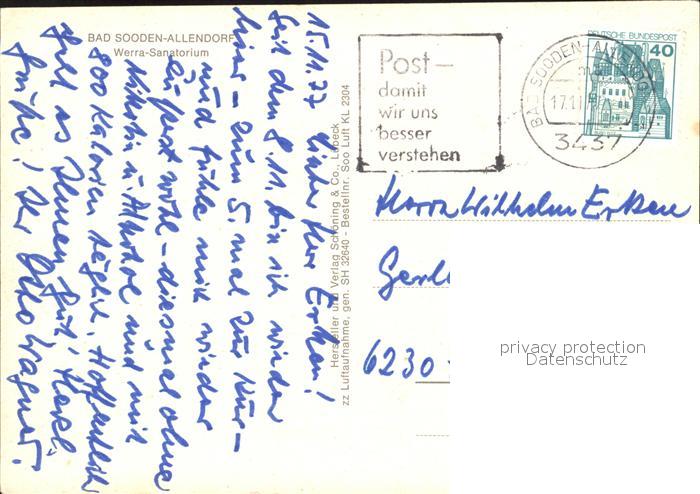 BAD SOODEN-ALLENDORF
Werra-Sanatorium
15.11.77 Lieber Herr Erken!
Seit dem 8.11. bin ich wieder
hier – zum 5. mal zur Kur –
und fühle mich wieder
äußerst wohl – diesmal ohne
Nikotin u. Alkohol und mit
800 Kalorien täglich. Hoffentlich
geht es Ihnen gut! Herzl.
Grüße! Ihr Otto Wagner.
Hersteller und Verlag Schöning & Co., Lübeck
zz Luftaufnahme, gen. SH 32640 - Bestellnr. Soo Luft KL 2304
Post –
damit
wir uns
besser
verstehen
BAD SOODEN-ALLENDORF
17.11
3437
DEUTSCHE BUNDESPOST
40
Herrn Wilhelm Erken
Gerl
6230
privacy protection
Datenschutz